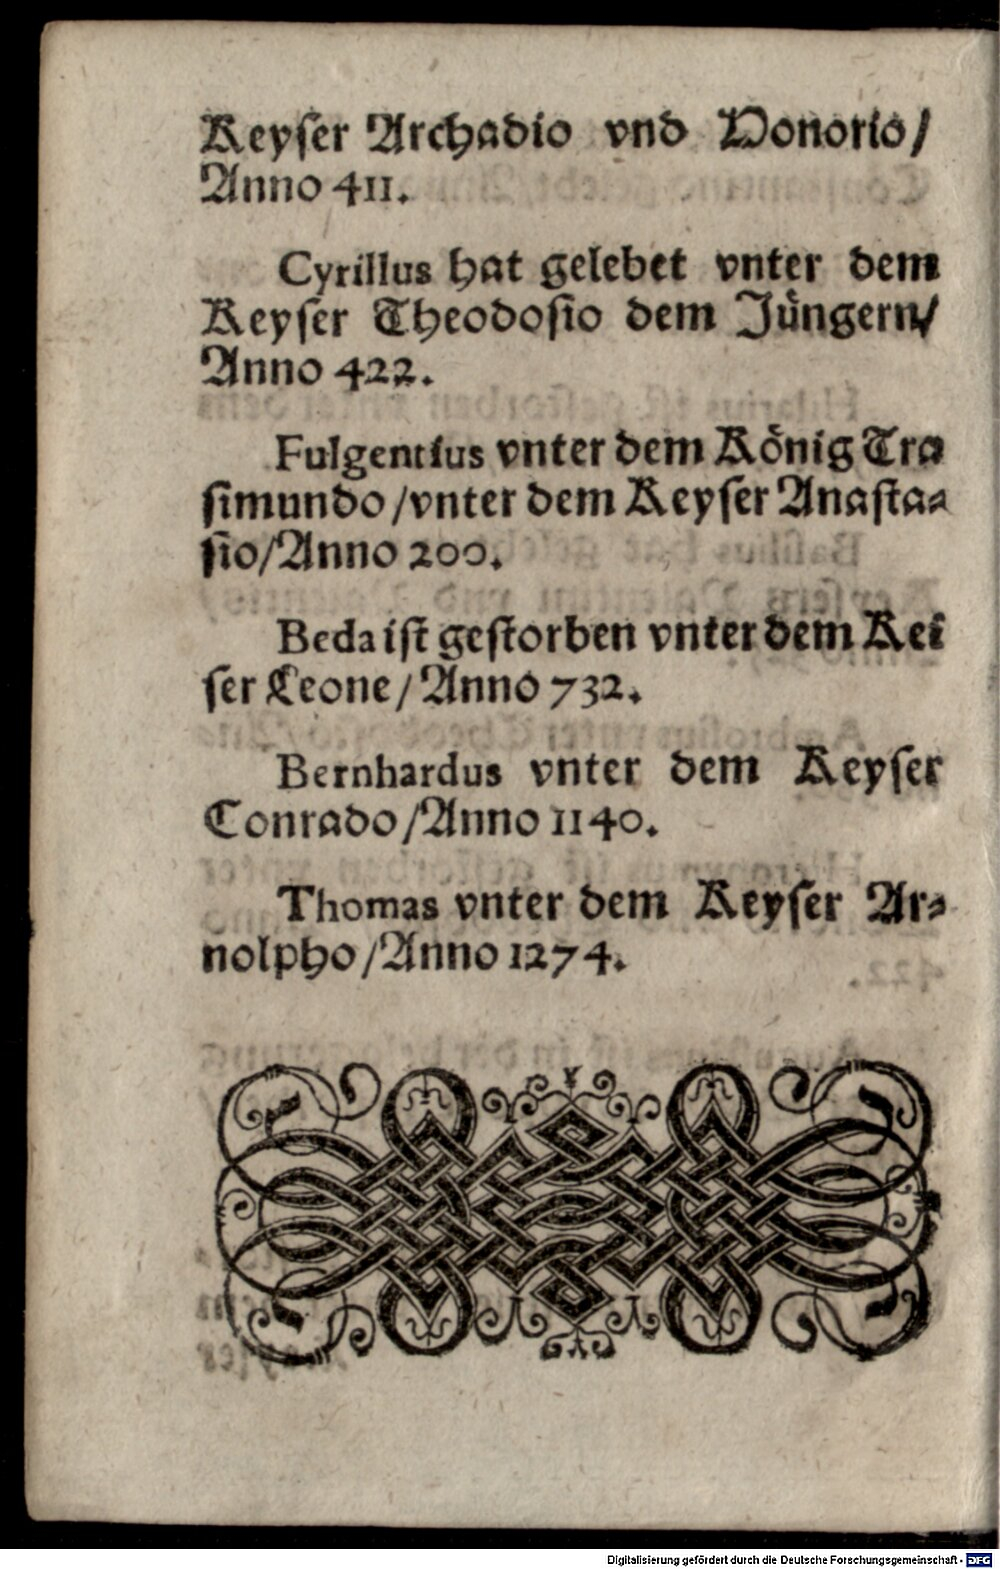 Keyser Archadio vnd Honorio/
Anno 411.
Cyrillus hat gelebet vnter dem
Keyser Theodosio dem Jüngern/
Anno 422.
Fulgentius vnter dem König Tra
simundo/vnter dem Keyser Anasta-
sio/Anno 200.
Beda ist gestorben vnter dem Kei
ser Leone/Anno 732.
Bernhardus vnter dem Keyser
Conrado/Anno 1140.
Thomas vnter dem Keyser Ar-
nolpho/Anno 1274.
Digitalisierung gefördert durch die Deutsche Forschungsgemeinschaft - DFG